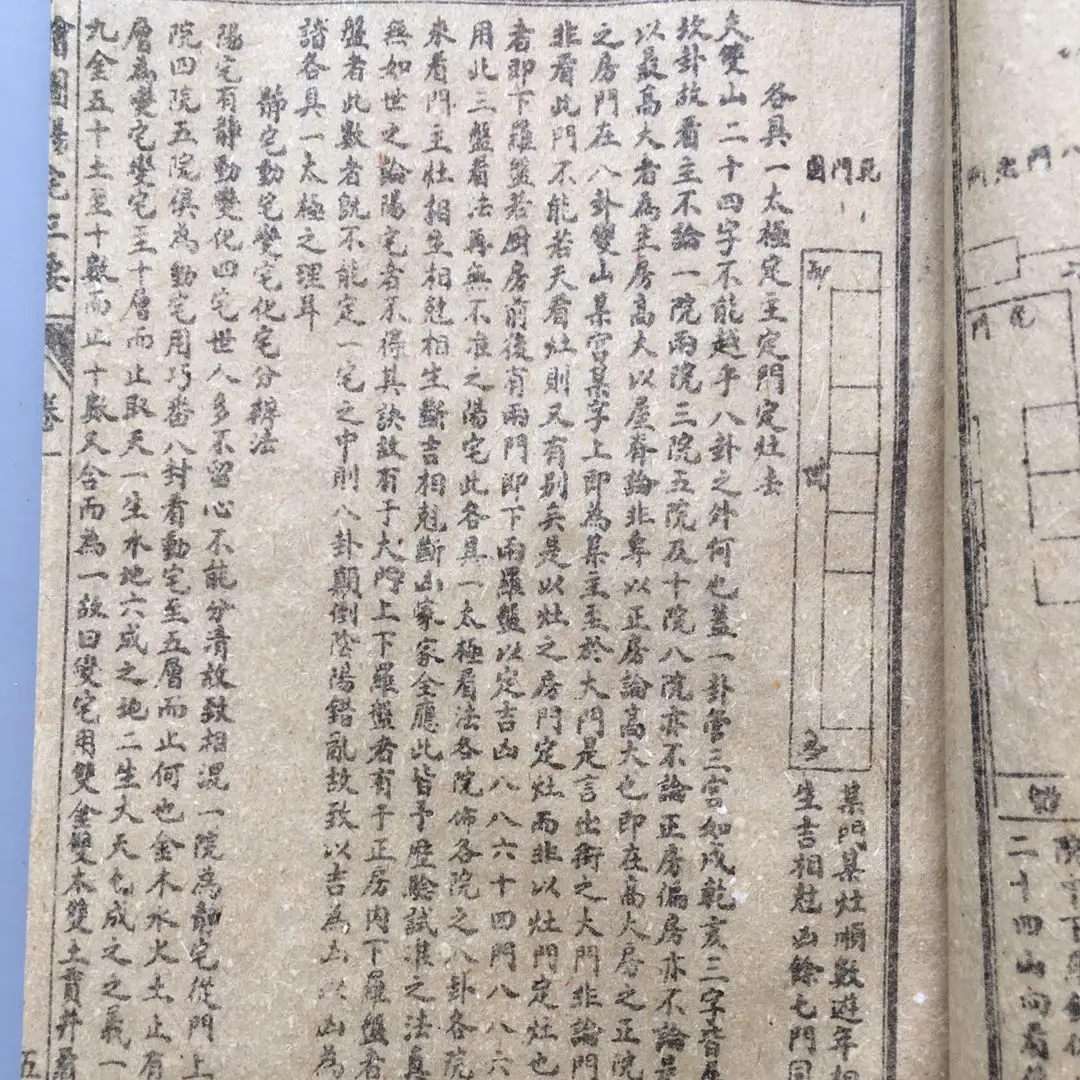 二十四山向看
門圖
某門某灶順數遊年相
生吉相尅凶餘七門同
各具一太極定主定門定灶法
夫雙山二十四字不能越乎八卦之外何也蓋一卦管三宮如戌乾亥三字皆屬
坎卦故看主不論一院兩院三院五院及十院八院亦不論正房偏房亦不論是
以最高大者為主房高大以屋脊論非專以正房論高大也即在高大房之正院
之房門在八卦雙山某宮某字上即為某主至於大門是言出街之大門非論門
非看此門不能若夫看灶則又有別矣是以灶之房門定灶而非以灶門定灶也
者即下羅盤若厨房前後有兩門即下兩羅盤以定吉凶八八六十四門八八六
用此三盤看法再無不准之陽宅此各具一太極看法各院佈各院之八卦各院
來看門主灶相生相尅相生斷吉相尅斷凶家家全應此皆予歷驗試准之法真
無如世之論陽宅者不得其訣故有于大門上下羅盤者有于正房內下羅盤者
盤者此數者既不能定一宅之中則八卦顛倒陰陽錯亂故致以吉為凶以凶為
諳各具一太極之理耳
靜宅動宅變宅化宅分辨法
陽宅有靜動變化四宅世人多不留心不能分清故致相混一院為靜宅從門上
院四院五院俱為動宅用巧番八卦看動宅至五層而止何也金木水火土止有
層為變宅變宅至十層而止取天一生水地六成之地二生火天七成之之義一
九金五十土至十數而止十數又合而為一故曰變宅用雙金雙木雙土貫井看
繪圖陽宅三要
卷一
五